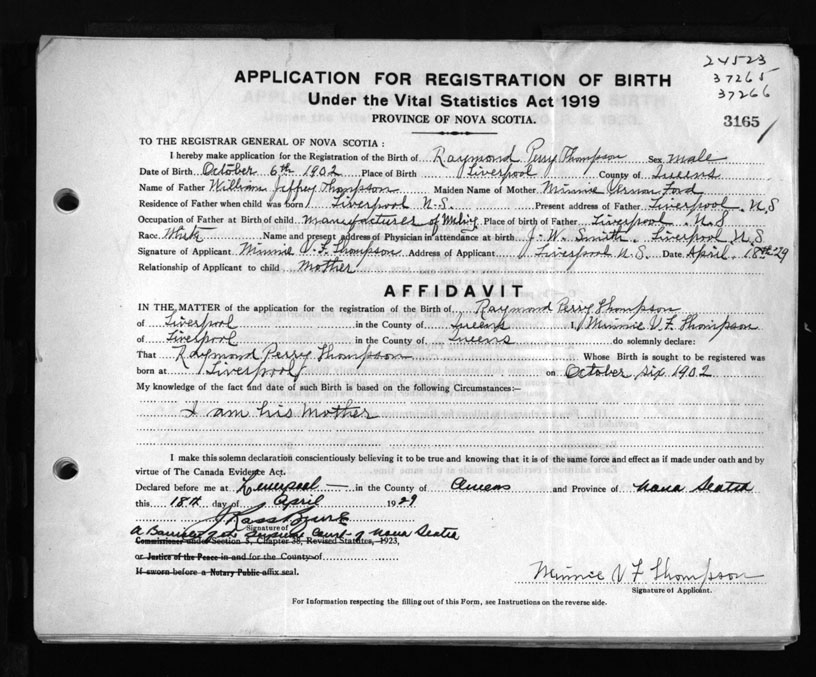 24523
37265
37266
3165
APPLICATION FOR REGISTRATION OF BIRTH
Under the Vital Statistics Act 1919
PROVINCE OF NOVA SCOTIA.
TO THE REGISTRAR GENERAL OF NOVA SCOTIA:
I hereby make application for the Registration of the Birth of Raymond Perry Thompson Sex male
Date of Birth October 6th 1902 Place of Birth Liverpool County of Queens
Name of Father William Jeffrey Thompson Maiden Name of Mother Minnie Vernon Ford
Residence of Father when child was born Liverpool N.S. Present address of Father Liverpool N.S
Occupation of Father at Birth of child manufacturer of Place of birth of Father Liverpool N.S
Race White Name and present address of Physician in attendance at birth J. W. Smith. Liverpool N.S
Signature of Applicant Minnie V. F. Thompson Address of Applicant Liverpool N.S. Date April 18th 29
Relationship of Applicant to child mother
AFFIDAVIT
IN THE MATTER of the application for the registration of the Birth of Raymond Perry Thompson
of Liverpool in the County of Queens I, Minnie V. F. Thompson
of Liverpool in the County of Queens do solemnly declare:
That Raymond Perry Thompson Whose Birth is sought to be registered was
born at Liverpool on October six 1902
My knowledge of the fact and date of such Birth is based on the following Circumstances:—
I am his mother
I make this solemn declaration conscientiously believing it to be true and knowing that it is of the same force and effect as if made under oath and by
virtue of The Canada Evidence Act.
Declared before me at Liverpool in the County of Queens and Province of Nova Scotia
this 18th day of April 1929
Signature of
A Barrister of the Supreme Court of Nova Scotia
Commissioner under Section 5, Chapter 38, Revised Statutes, 1923,
or Justice of the Peace in and for the County of
If sworn before a Notary Public affix seal.
Minnie V F Thompson
Signature of Applicant.
For Information respecting the filling out of this Form, see Instructions on the reverse side.